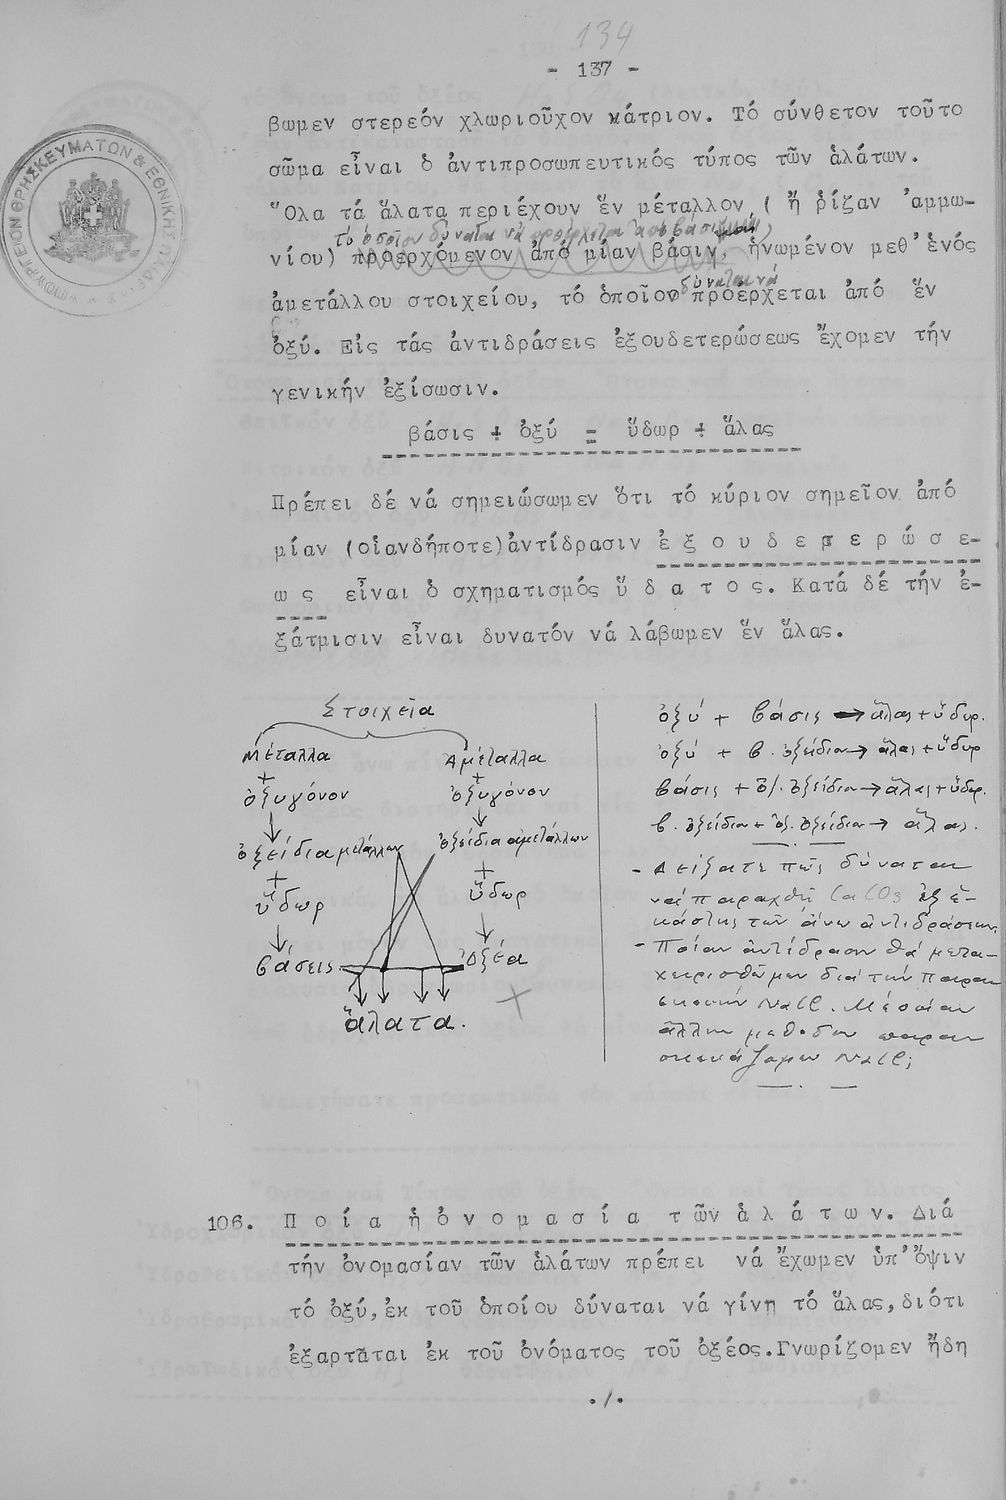 134
- 137 -
βωμεν στερεόν χλωριοῦχον νάτριον. Τό σύνθετον τοῦτο
σῶμα εἶναι ὁ ἀντιπροσωπευτικός τύπος τῶν ἁλάτων.
Ὅλα τά ἅλατα περιέχουν ἕν μέταλλον ( ἤ ρίζαν ἀμμω-
τό ὁποῖον δύναται νά προέρχεται ἀπό βάσιν
νίου) προερχόμενον ἀπό μίαν βάσιν, ἡνωμένον μεθ' ἑνός
δύναται νά
ἀμετάλλου στοιχείου, τό ὁποῖον προέρχεται ἀπό ἕν
ὀξύ. Εἰς τάς ἀντιδράσεις ἐξουδετερώσεως ἔχομεν τήν
γενικήν ἐξίσωσιν.
βάσις + ὀξύ = ὕδωρ + ἅλας
Πρέπει δέ νά σημειώσωμεν ὅτι τό κύριον σημεῖον ἀπό
μίαν (οἱανδήποτε) ἀντίδρασιν ἐ ξ ο υ δ ε τ ε ρ ώ σ ε-
ω ς εἶναι ὁ σχηματισμός ὕ δ α τ ο ς. Κατά δέ τήν ἐ-
ξάτμισιν εἶναι δυνατόν νά λάβωμεν ἕν ἅλας.
Στοιχεῖα
Μέταλλα Ἀμέταλλα
+ +
ὀξυγόνον ὀξυγόνον
ὀξείδια μετάλλων ὀξείδια ἀμετάλλων
+ +
ὕδωρ ὕδωρ
βάσεις ὀξέα
ἅλατα.
ὀξύ + βάσις → ἅλας + ὕδωρ.
ὀξύ + β. ὀξείδιον → ἅλας + ὕδωρ
βάσις + ὀξ. ὀξείδιον → ἅλας + ὕδωρ.
β. ὀξείδιον + ὀξ. ὀξείδιον → ἅλας.
- Δείξατε πῶς δύναται
νά παραχθῇ CaCO3 ἐξ ἑ-
κάστης τῶν ἄνω ἀντιδράσεων.
- Ποίαν ἀντίδρασιν θά μετα-
χειρισθῶμεν διά τήν παρα-
σκευήν NaCl. Μέ ποίαν
ἄλλην μέθοδον παρα-
σκευάζομεν NaCl;
106. Π ο ί α ἡ ὀ ν ο μ α σ ί α τ ῶ ν ἁ λ ά τ ω ν. Διά
τήν ὀνομασίαν τῶν ἁλάτων πρέπει νά ἔχωμεν ὑπ' ὄψιν
τό ὀξύ, ἐκ τοῦ ὁποίου δύναται νά γίνη τό ἅλας, διότι
ἐξαρτᾶται ἐκ τοῦ ὀνόματος τοῦ ὀξέος. Γνωρίζομεν ἤδη
./.